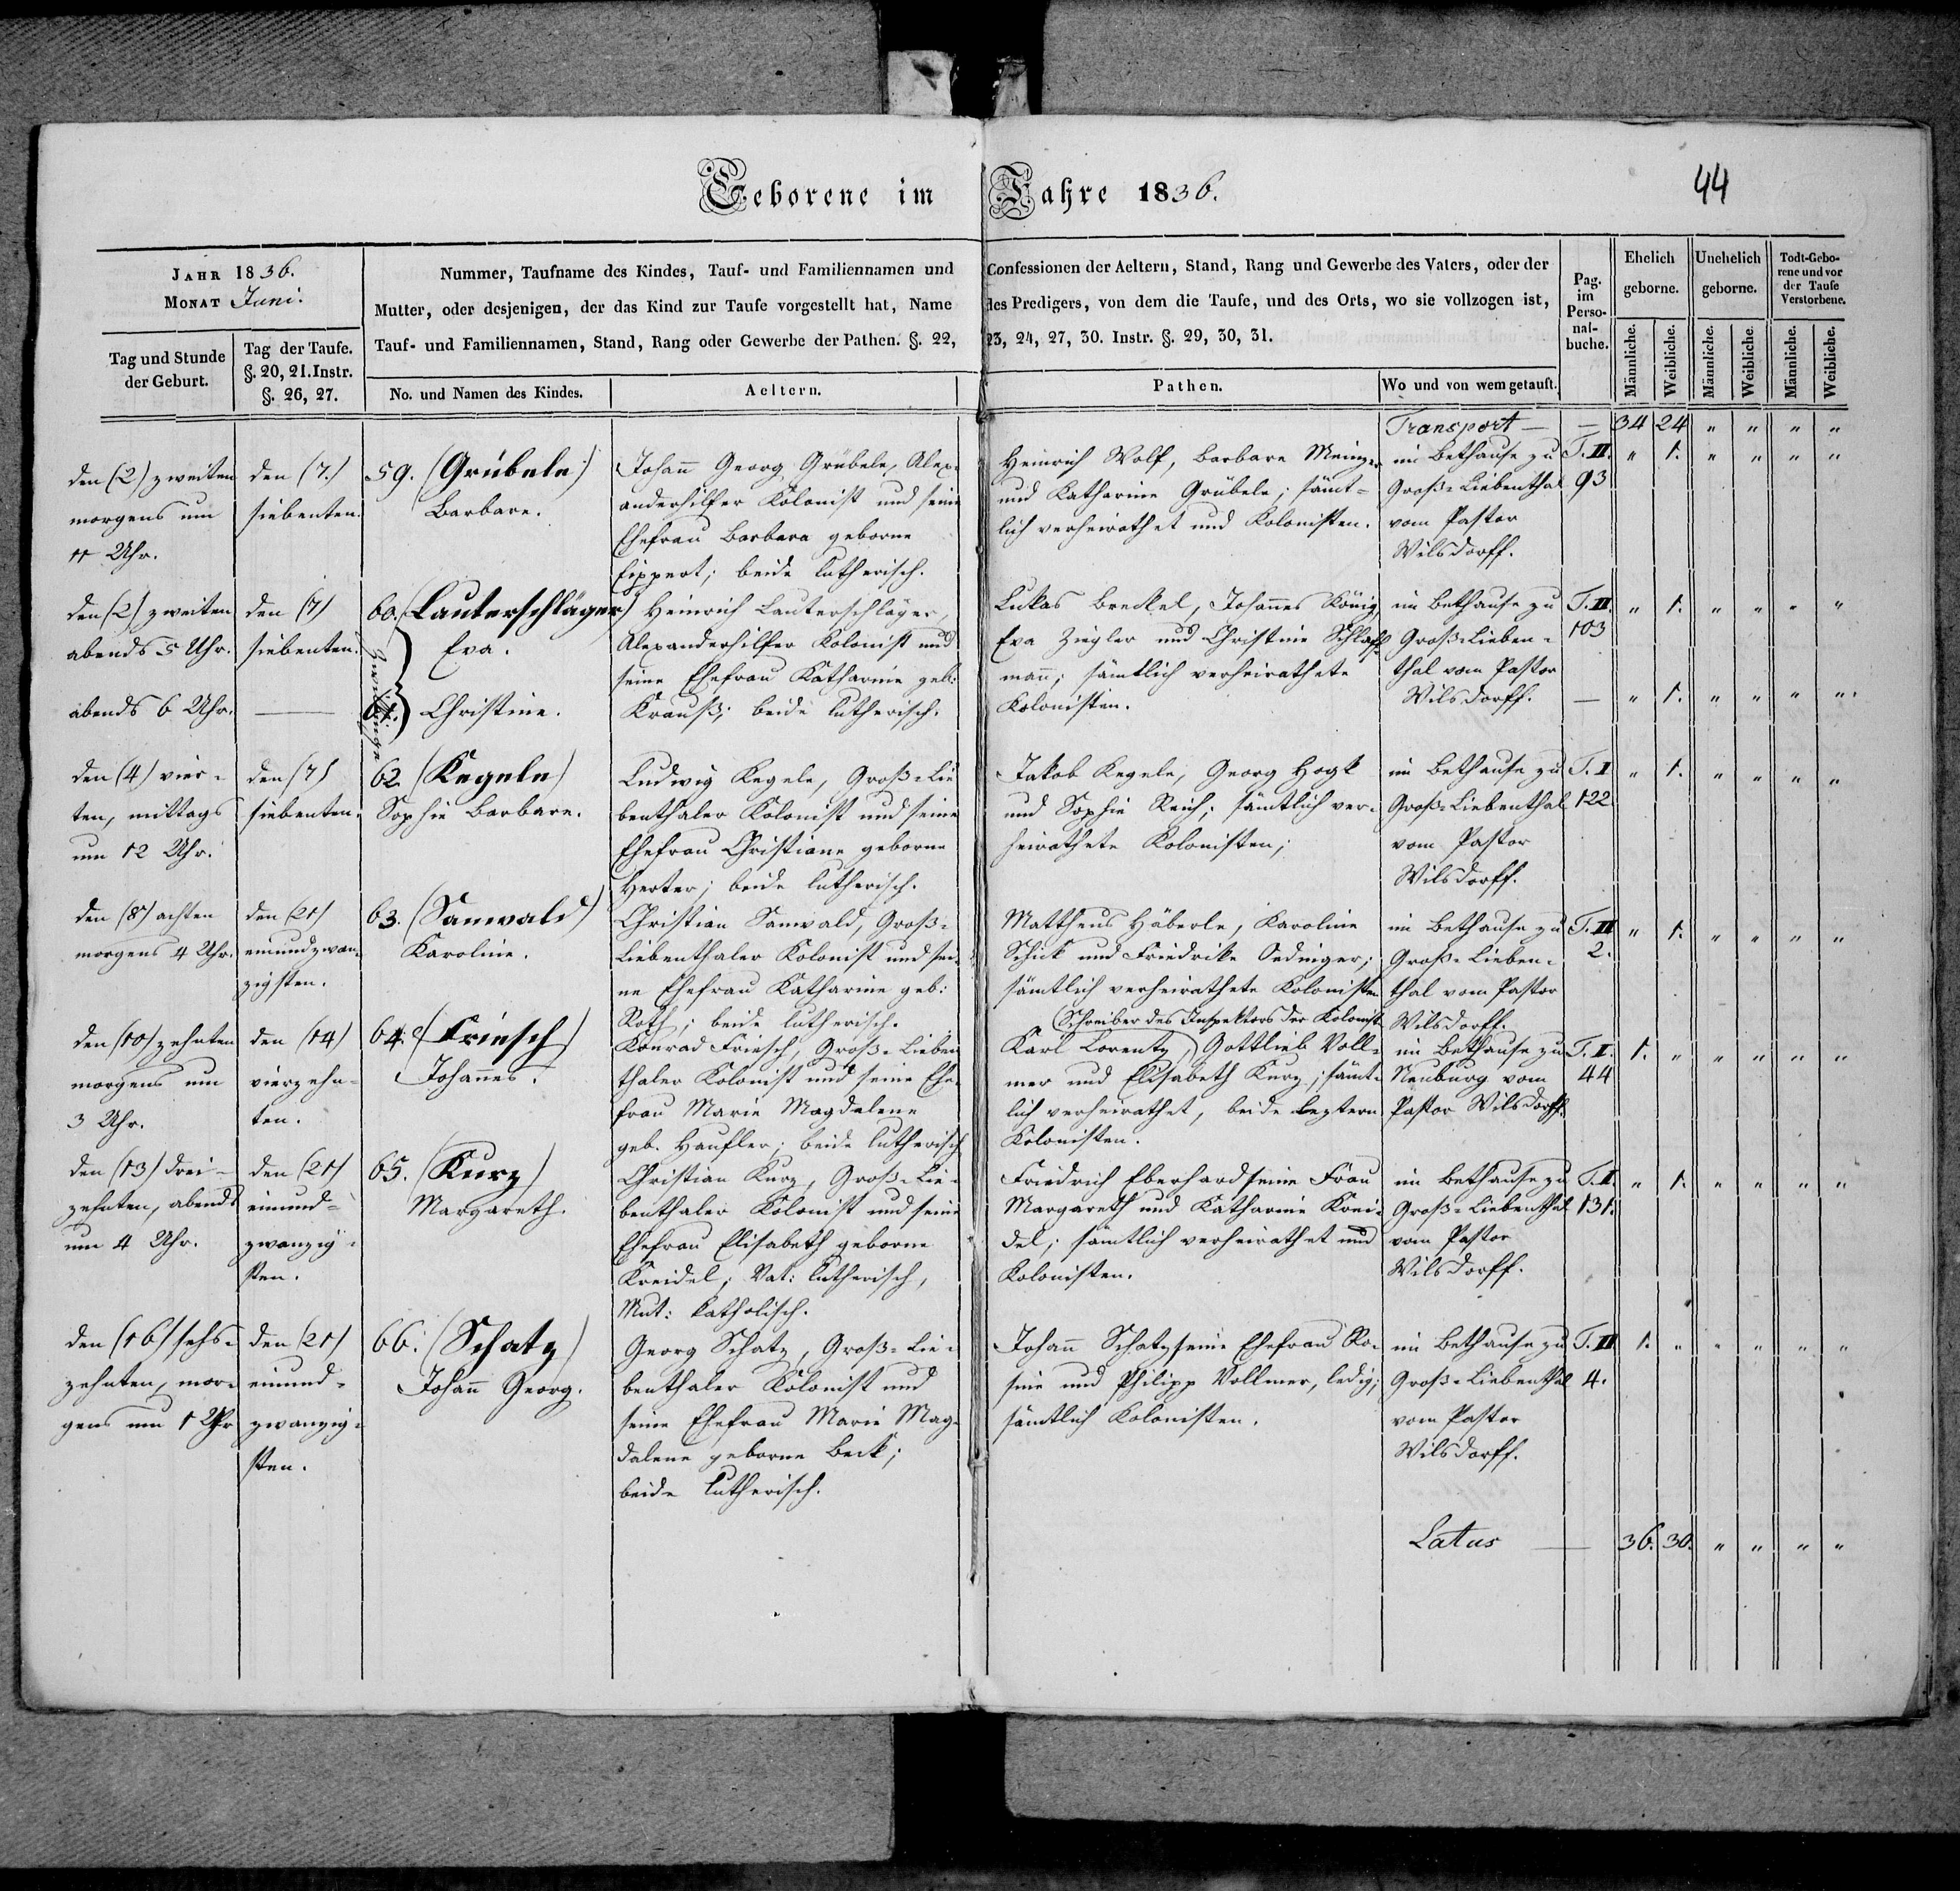 Geborene im Jahre 1836.
44
JAHR 1836.
MONAT Juni.
Tag und Stunde der Geburt.
Tag der Taufe. §. 20, 21. Instr. §. 26, 27.
Nummer, Taufname des Kindes, Tauf- und Familiennamen und Confessionen der Aeltern, Stand, Rang und Gewerbe des Vaters, oder der
Mutter, oder desjenigen, der das Kind zur Taufe vorgestellt hat, Name des Predigers, von dem die Taufe, und des Orts, wo sie vollzogen ist,
Tauf- und Familiennamen, Stand, Rang oder Gewerbe der Pathen. §. 22, 23, 24, 27, 30. Instr. §. 29, 30, 31.
No. und Namen des Kindes.
Aeltern.
Pathen.
Wo und von wem getauft.
Pag. im Perso-nal-buche.
Ehelich geborne.
Unehelich geborne.
Todt-Gebo-rene und vor der Taufe Verstorbene.
Männliche.
Weibliche.
Männliche.
Weibliche.
Männliche.
Weibliche.
Transport — — 34 24 " " " "
den (2) zweiten
morgens um
11 Uhr.
den (7.)
siebenten.
59. (Grübele)
Barbare.
Johann Georg Grübele, Alex-
anderhilfer Kolonist und seine
Ehefrau Barbara geborne
Lippert; beide lutherisch.
Heinrich Wolf, Barbare Meinzer
und Katharine Grübele; sämt-
lich verheirathet und Kolonisten.
im Bethause zu
Groß-Liebenthal
vom Pastor
Wilsdorff.
T. II.
93
" 1. " " " "
den (2) zweiten
abends 5 Uhr.
abends 6 Uhr.
den (7)
siebenten.
—
60. (Lauterschläger)
Eva.
Zwillinge
61. Christine.
Heinrich Lauterschläger,
Alexanderhilfer Kolonist und
seine Ehefrau Katharine geb:
Krauß; beide lutherisch.
Lukas Breckel, Johannes König
Eva Ziegler und Christine Schlaff-
mann; sämtlich verheirathete
Kolonisten.
im Bethause zu
Groß-Lieben-
thal vom Pastor
Wilsdorff.
T. II.
103
" 1. " " " "
— " 1. " " " ".
den (4) vier-
ten, mittags
um 12 Uhr.
den (7)
siebenten.
62. (Kegele)
Sophie Barbare.
Ludwig Kegele, Groß-Lie
benthaler Kolonist und seine
Ehefrau Christiane geborne
Herter; beide lutherisch.
Jakob Kegele, Georg Hogk
und Sophie Reich; sämtlich ver-
heirathete Kolonisten;
im Bethause zu
Groß-Liebenthal
vom Pastor
Wilsdorff.
T. I
122.
" 1. " " " "
den (8) achten
morgens 4 Uhr.
den (21)
einundzwan-
zigsten.
63. (Sanwald)
Karoline.
Christian Sanwald, Groß-
Liebenthaler Kolonist und sei-
ne Ehefrau Katharine geb:
Roth; beide lutherisch.
Mattheus Häberle, Karoline
Schick und Friedrike Oedinger;
sämtlich verheirathete Kolonisten
im Bethause zu
Groß-Lieben-
thal vom Pastor
Wilsdorff.
T. II
2.
" 1. " " " "
den (10) zehnten
morgens um
3 Uhr.
den (14)
vierzehn-
ten.
64. (Friesch)
Johannes.
Konrad Friesch, Groß-Lieben
thaler Kolonist und seine Ehe-
frau Marie Magdalene
geb. Haufler; beide lutherisch
(Schreiber des Inspektors der Kolonist
Karl Lorentz,) Gottlieb Voll-
mer und Elisabeth Kurz; sämt-
lich verheirathet, beide leztern
Kolonisten.
im Bethause zu
Neuburg vom
Pastor Wilsdorff.
T. I.
44
1. " " " " "
den (13) drei-
zehnten, abends
um 4 Uhr.
den (21)
einund-
zwanzig-
sten.
65. (Kurz)
Margareth.
Christian Kurz, Groß-Lie-
benthaler Kolonist und seine
Ehefrau Elisabeth geborne
Kreidel; Vat: lutherisch,
Mut: katholisch.
Friedrich Eberhard seine Frau
Margareth und Katharine Krei-
del; sämtlich verheirathet und
Kolonisten.
im Bethause zu
Groß-Liebenthal
vom Pastor
Wilsdorff.
T. I.
131.
" 1. " " " "
den (16) sechs-
zehnten, mor-
gens um 1 Uhr
den (21)
einund-
zwanzig-
sten.
66. (Schatz)
Johann Georg.
Georg Schatz, Groß-Lie-
benthaler Kolonist und
seine Ehefrau Marie Mag-
dalene geborne Beck;
beide lutherisch.
Johann Schatz seine Ehefrau Ro-
sine und Philipp Vollmer, ledig;
sämtlich Kolonisten.
im Bethause zu
Groß-Liebenthal
vom Pastor
Wilsdorff.
T. II
4.
1. " " " " "
Latus — 36. 30. " " " "